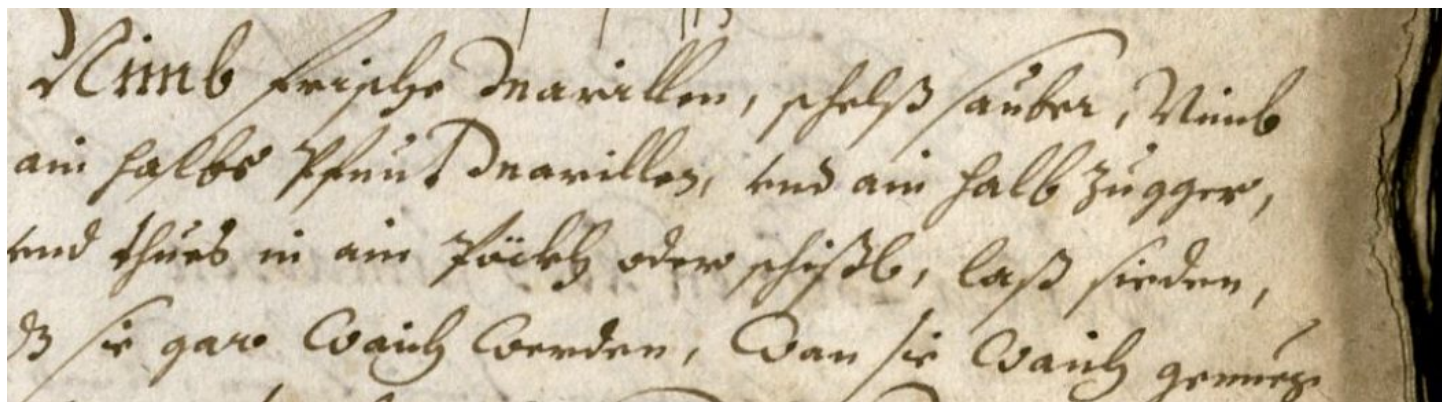 Nimb frische Marillen, schelß sauber, Nimb
ain halbs Pfunt Marillen, vnd ain halb Zugger,
vnd thues in ain Pöckh oder schißl, laß sieden,
dß sie gar Waich Werden, Wan sie Waich genueg